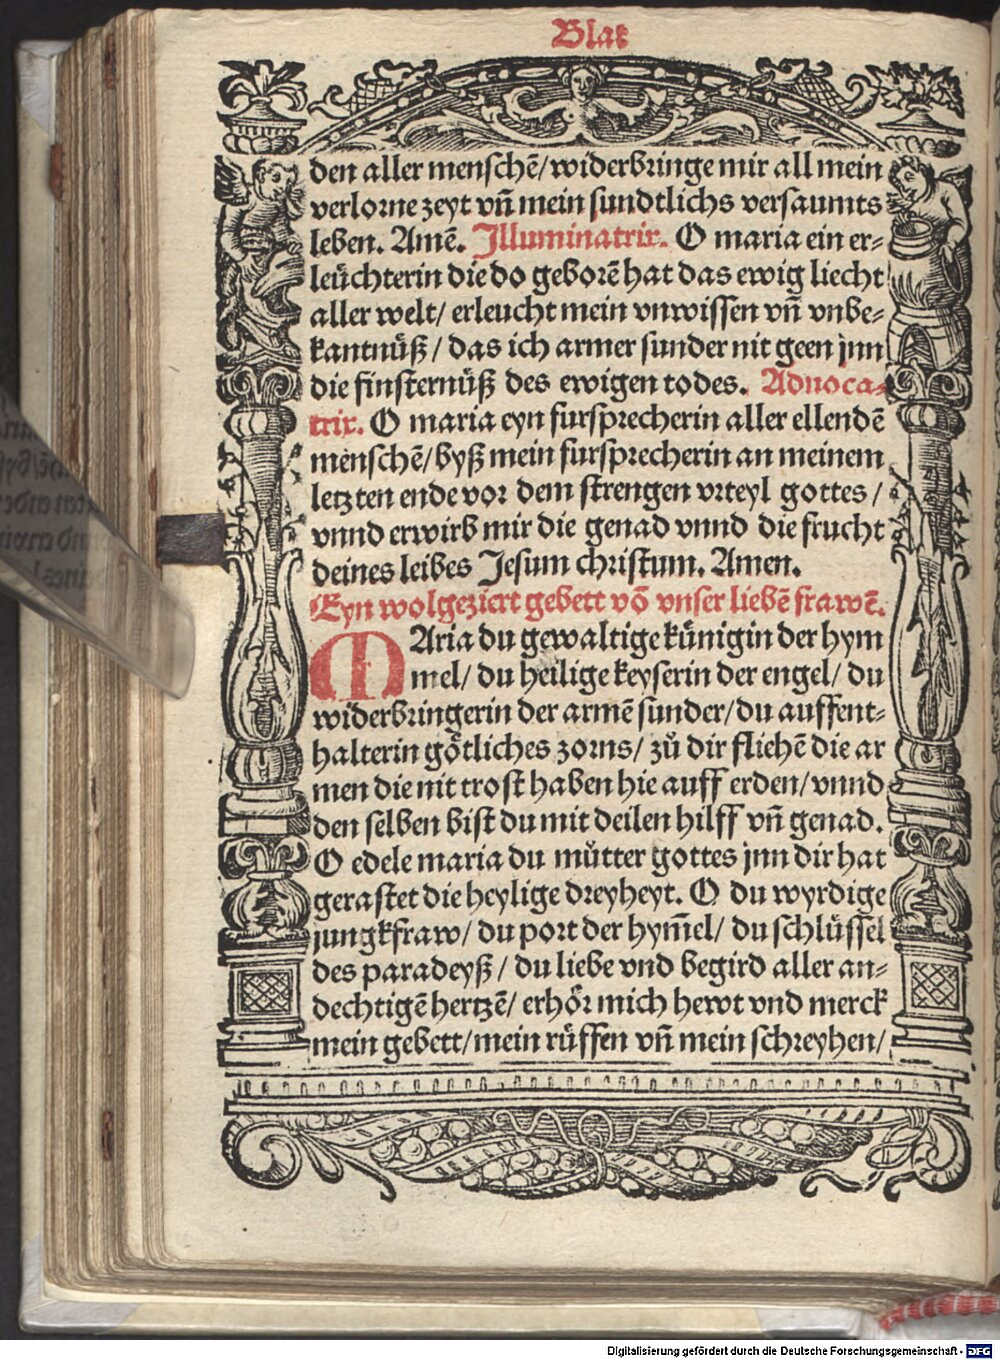 Blat
den aller menschē/widerbringe mir all mein
verlorne zeyt vñ mein sundtlichs versaumts
leben. Amē. Illuminatrix. O maria ein er-
leüchterin die do geborē hat das ewig liecht
aller welt/ erleucht mein vnwissen vñ vnbe-
kantnüß/ das ich armer sunder nit geen jnn
die finsternüß des ewigen todes. Aduoca-
trix. O maria eyn fursprecherin aller ellendē
menschē/byß mein fursprecherin an meinem
letzten ende vor dem strengen vrteyl gottes/
vnnd erwirb mir die genad vnnd die frucht
deines leibes Jesum christum. Amen.
Eyn wolgeziert gebett vō vnser liebē frawē.
MAria du gewaltige künigin der hym
mel/ du heilige keyserin der engel/ du
widerbringerin der armē sunder/du auffent-
halterin götliches zorns/ zů dir fliehē die ar
men die nit trost haben hie auff erden/vnnd
den selben bist du mit deilen hilff vñ genad.
O edele maria du můtter gottes jnn dir hat
gerastet die heylige dreyheyt. O du wyrdige
jungkfraw/ du port der hym̄el/ du schlüssel
des paradeyß/ du liebe vnd begird aller an-
dechtigē hertzē/ erhör mich hewt vnd merck
mein gebett/mein rüffen vñ mein schreyhen/
Digitalisierung gefördert durch die Deutsche Forschungsgemeinschaft - DFG